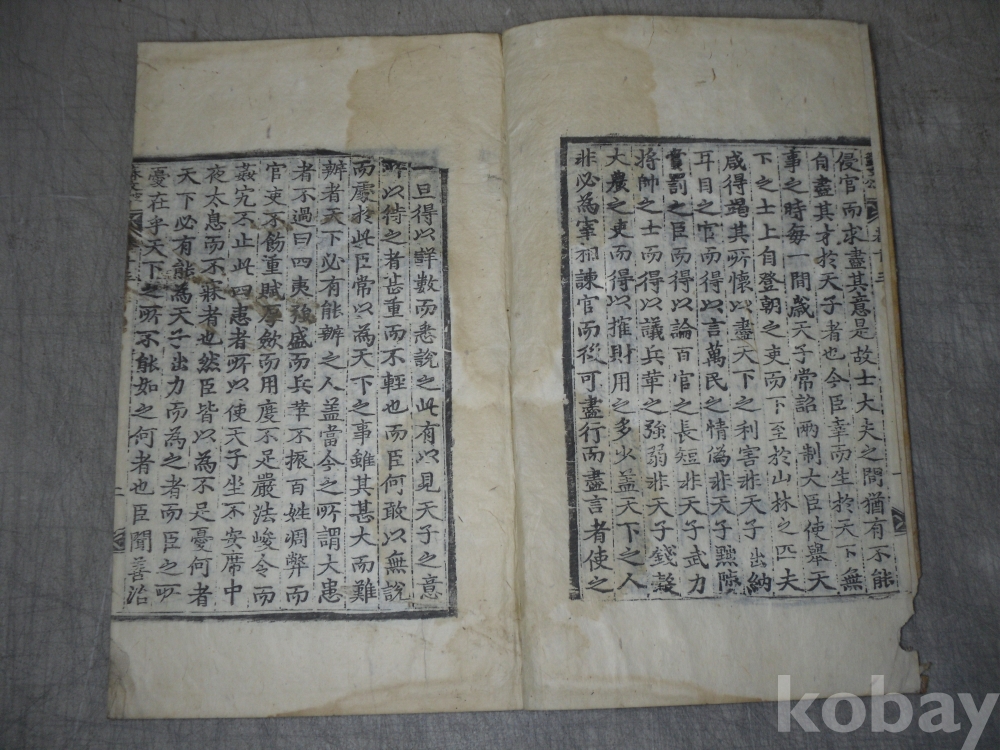 侵官而求盡其意是故士大夫之間猶有不能
自盡其才於天子者也今臣幸而生於天下無
事之時每一間歲天子常詔兩制大臣使舉天
下之士上自登朝之吏而下至於山林之匹夫
咸得竭其所懷以盡天下之利害非天子出納
耳目之官而得以言萬民之情僞非天子黜陟
賞罰之臣而得以論百官之長短非天子武力
將帥之士而得以議兵革之強弱非天子錢穀
大農之吏而得以摧財用之多少盖天下之人
非必為宰相諫官而後可盡行而盡言者使之
一旦得以詳數而悉說之此有以見天子之意
所以待之者甚重而不輕也而臣何敢以無說
而處於此臣常以為天下之事雖其甚大而難
辦者天下必有能辦之人盖當今之所謂大患
者不過曰四夷強盛而兵革不振百姓凋弊而
官吏不飭重賦厚斂而用度不足嚴法峻令而
姦宄不止此四患者所以使天子坐不安席中
夜太息而不寐者也然臣皆以為不足憂何者
天下必有能為天子出力而為之者而臣之所
憂在乎天下之所不能如之何者也臣聞善治
kobay